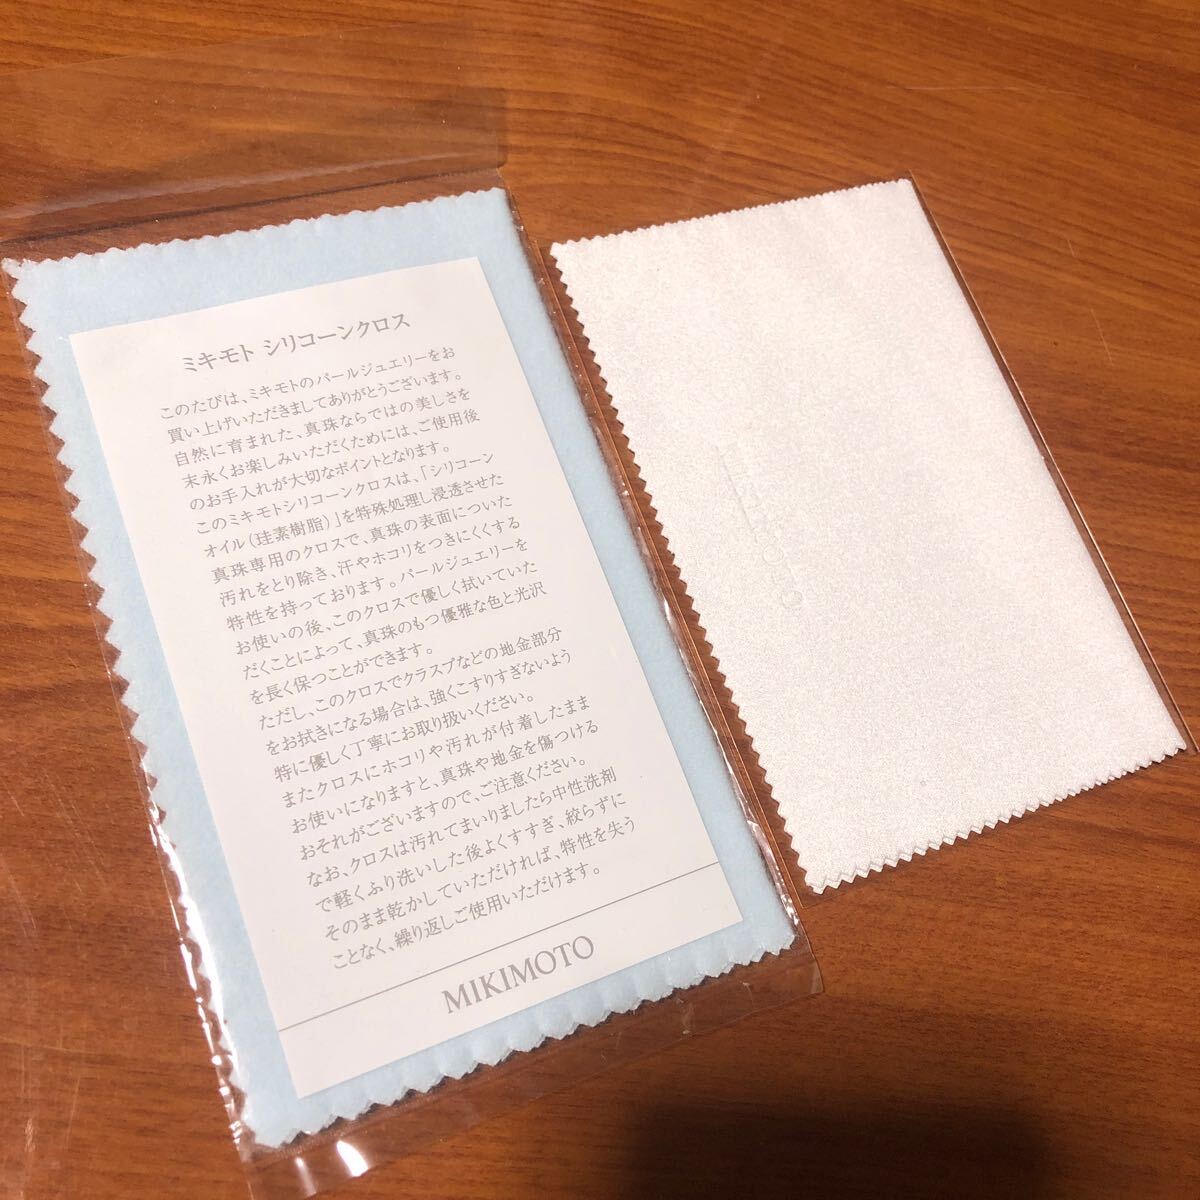 ミキモト シリコーンクロス
このたびは、ミキモトのパールジュエリーをお
買い上げいただきましてありがとうございます。
自然に育まれた、真珠ならではの美しさを
末永くお楽しみいただくためには、ご使用後
のお手入れが大切なポイントとなります。
このミキモトシリコーンクロスは、「シリコーン
オイル(珪素樹脂)」を特殊処理し浸透させた
真珠専用のクロスで、真珠の表面についた
汚れをとり除き、汗やホコリをつきにくくする
特性を持っております。パールジュエリーを
お使いの後、このクロスで優しく拭いていた
だくことによって、真珠のもつ優雅な色と光沢
を長く保つことができます。
ただし、このクロスでクラスプなどの地金部分
をお拭きになる場合は、強くこすりすぎないよう
特に優しく丁寧にお取り扱いください。
またクロスにホコリや汚れが付着したまま
お使いになりますと、真珠や地金を傷つける
おそれがございますので、ご注意ください。
なお、クロスは汚れてまいりましたら中性洗剤
で軽くふり洗いした後よくすすぎ、絞らずに
そのまま乾かしていただければ、特性を失う
ことなく、繰り返しご使用いただけます。
MIKIMOTO